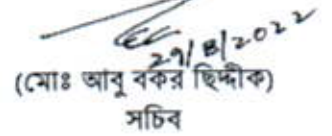 29/8/2022
(মোঃ আবু বকর ছিদ্দীক)
সচিব